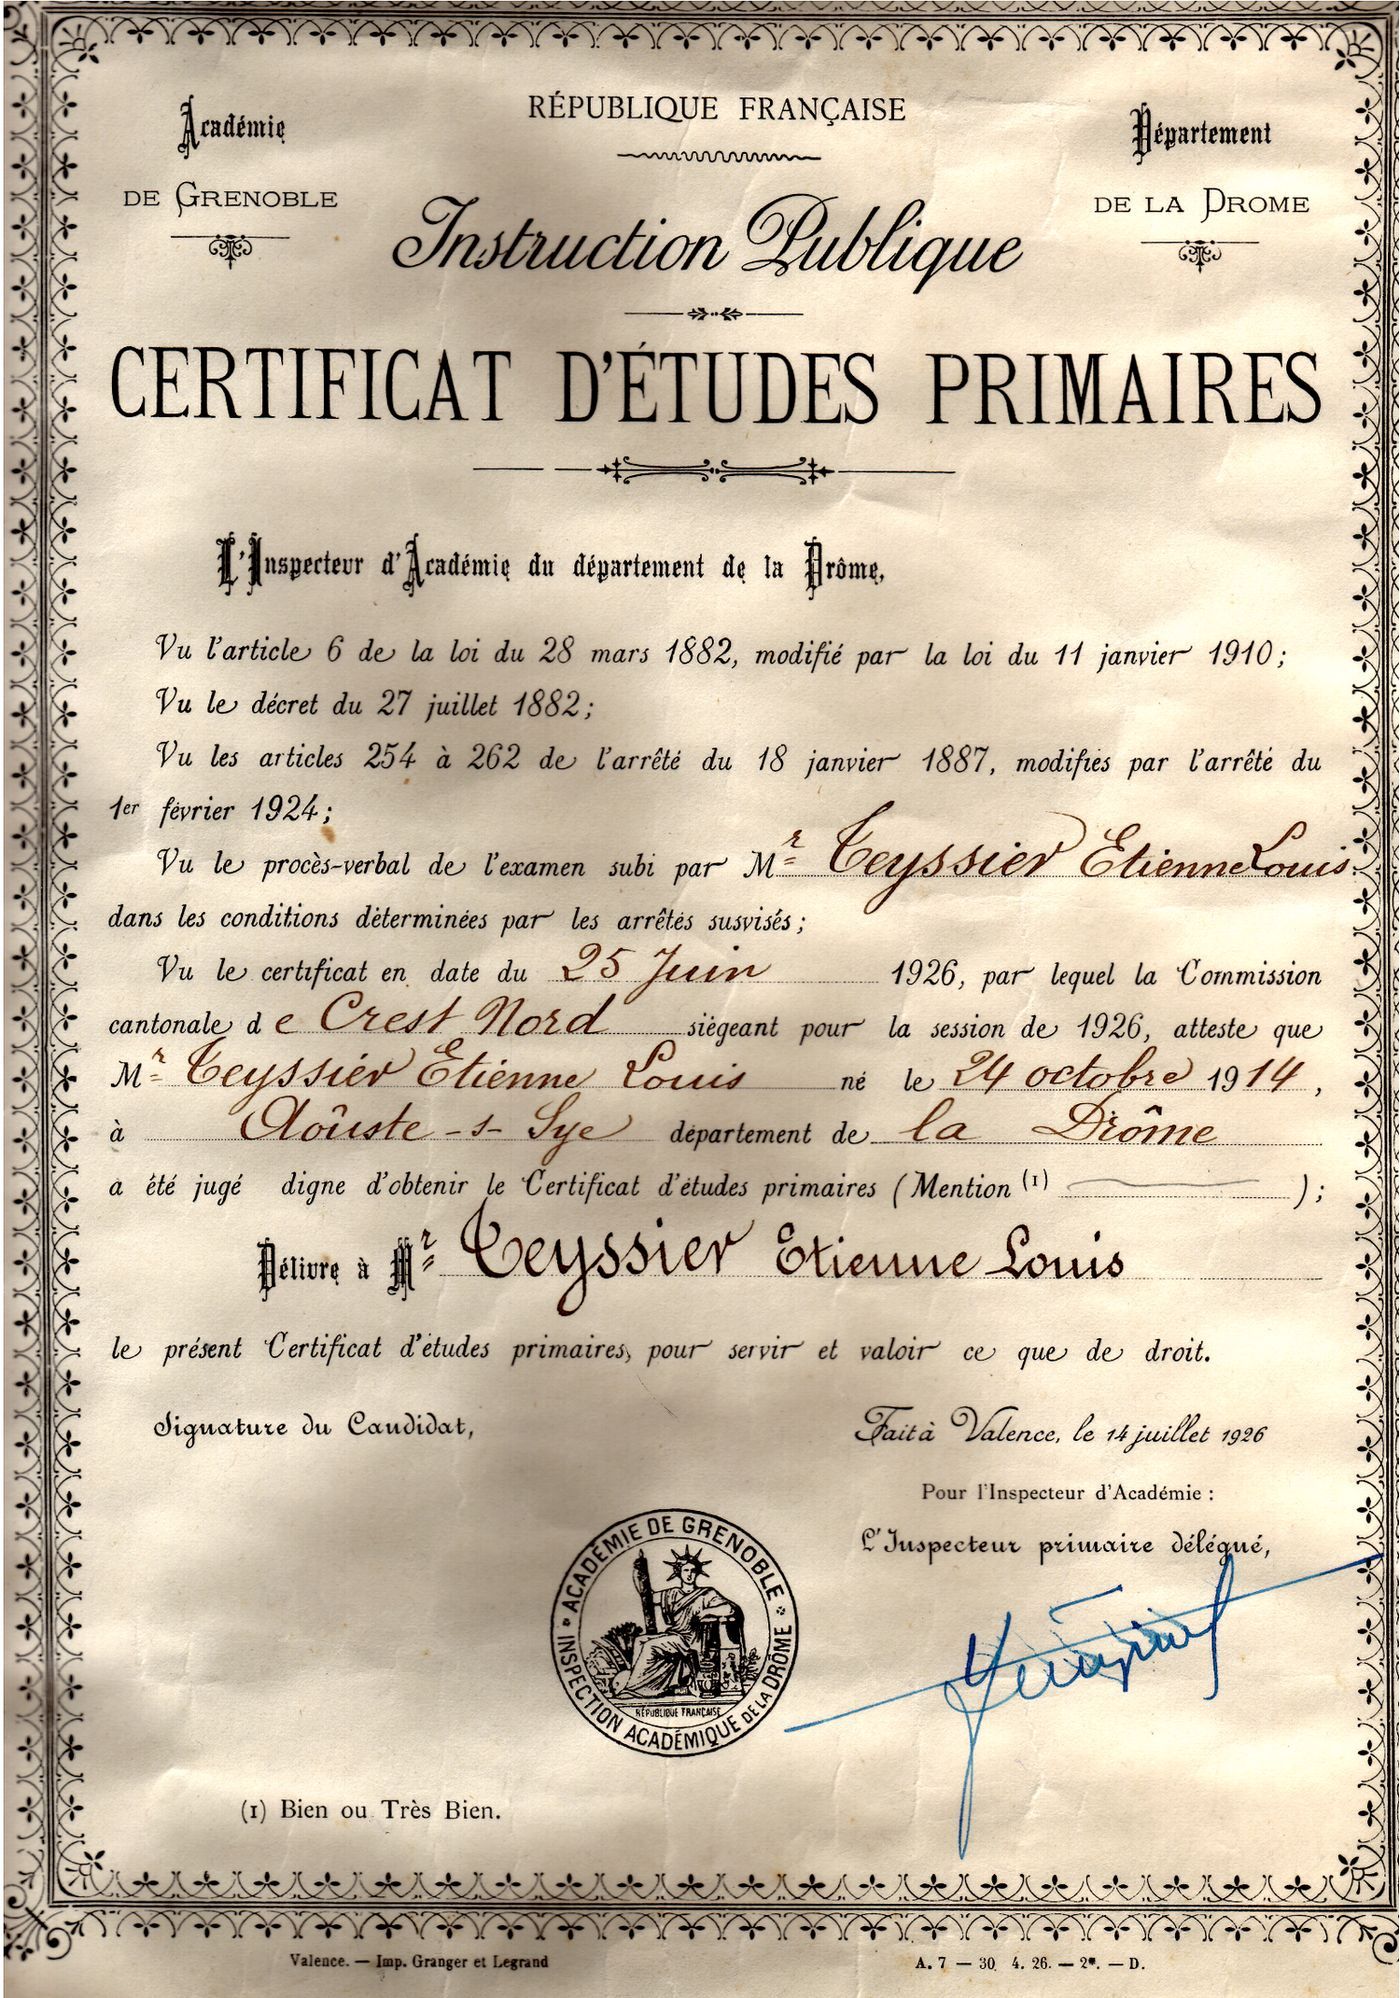 RÉPUBLIQUE FRANÇAISE
Académie
DE GRENOBLE
Département
DE LA DROME
Instruction Publique
CERTIFICAT D'ÉTUDES PRIMAIRES
L'Inspecteur d'Académie du département de la Drôme,
Vu l'article 6 de la loi du 28 mars 1882, modifié par la loi du 11 janvier 1910;
Vu le décret du 27 juillet 1882;
Vu les articles 254 à 262 de l'arrêté du 18 janvier 1887, modifiés par l'arrêté du
1er février 1924;
Vu le procès-verbal de l'examen subi par Mr Teyssier Etienne Louis
dans les conditions déterminées par les arrêtés susvisés;
Vu le certificat en date du 25 Juin 1926, par lequel la Commission
cantonale de Crest Nord siégeant pour la session de 1926, atteste que
Mr Teyssier Etienne Louis né le 24 octobre 1914,
à Aoûste-s-Sye département de la Drôme
a été jugé digne d'obtenir le Certificat d'études primaires (Mention (1) );
Délivre à Mr Teyssier Etienne Louis
le présent Certificat d'études primaires, pour servir et valoir ce que de droit.
Signature du Candidat,
Fait à Valence, le 14 juillet 1926
Pour l'Inspecteur d'Académie :
L'Inspecteur primaire délégué,
ACADÉMIE DE GRENOBLE
INSPECTION ACADÉMIQUE DE LA DROME
RÉPUBLIQUE FRANÇAISE
(1) Bien ou Très Bien.
Valence. — Imp. Granger et Legrand
A. 7 — 30. 4. 26. — 2*. — D.